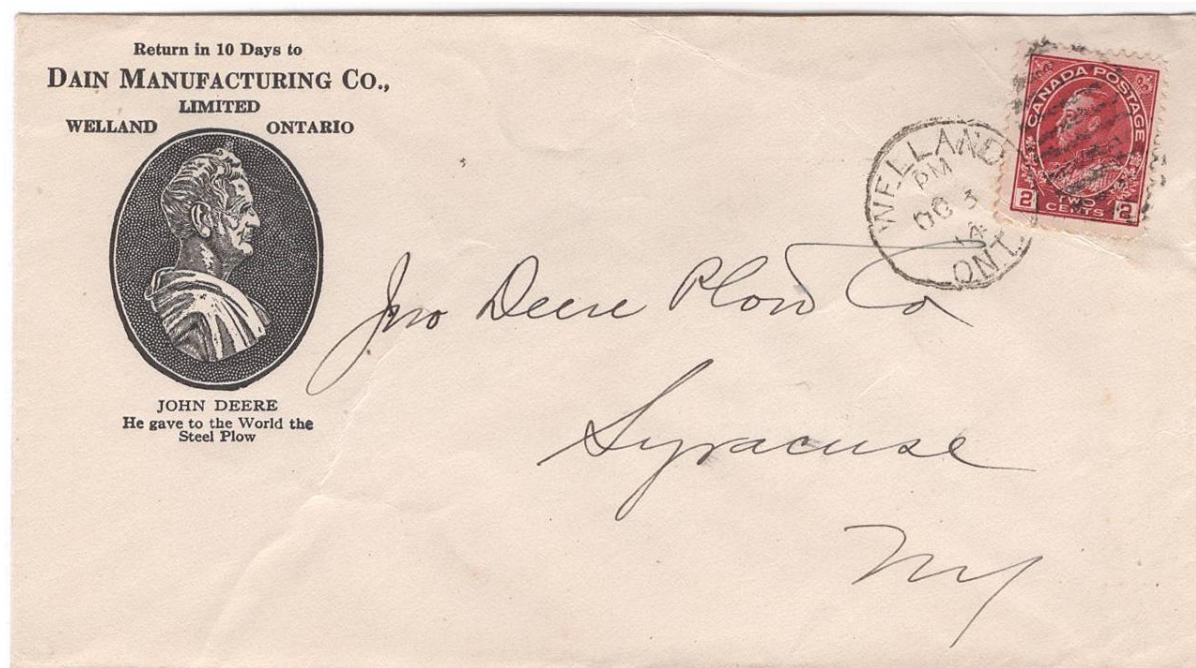 Return in 10 Days to
DAIN MANUFACTURING CO.,
LIMITED
WELLAND ONTARIO
JOHN DEERE
He gave to the World the
Steel Plow
WELLAND
PM
OC 3
14
ONT.
CANADA POSTAGE
2 TWO CENTS 2
Jno Deere Plow Co
Syracuse
NY